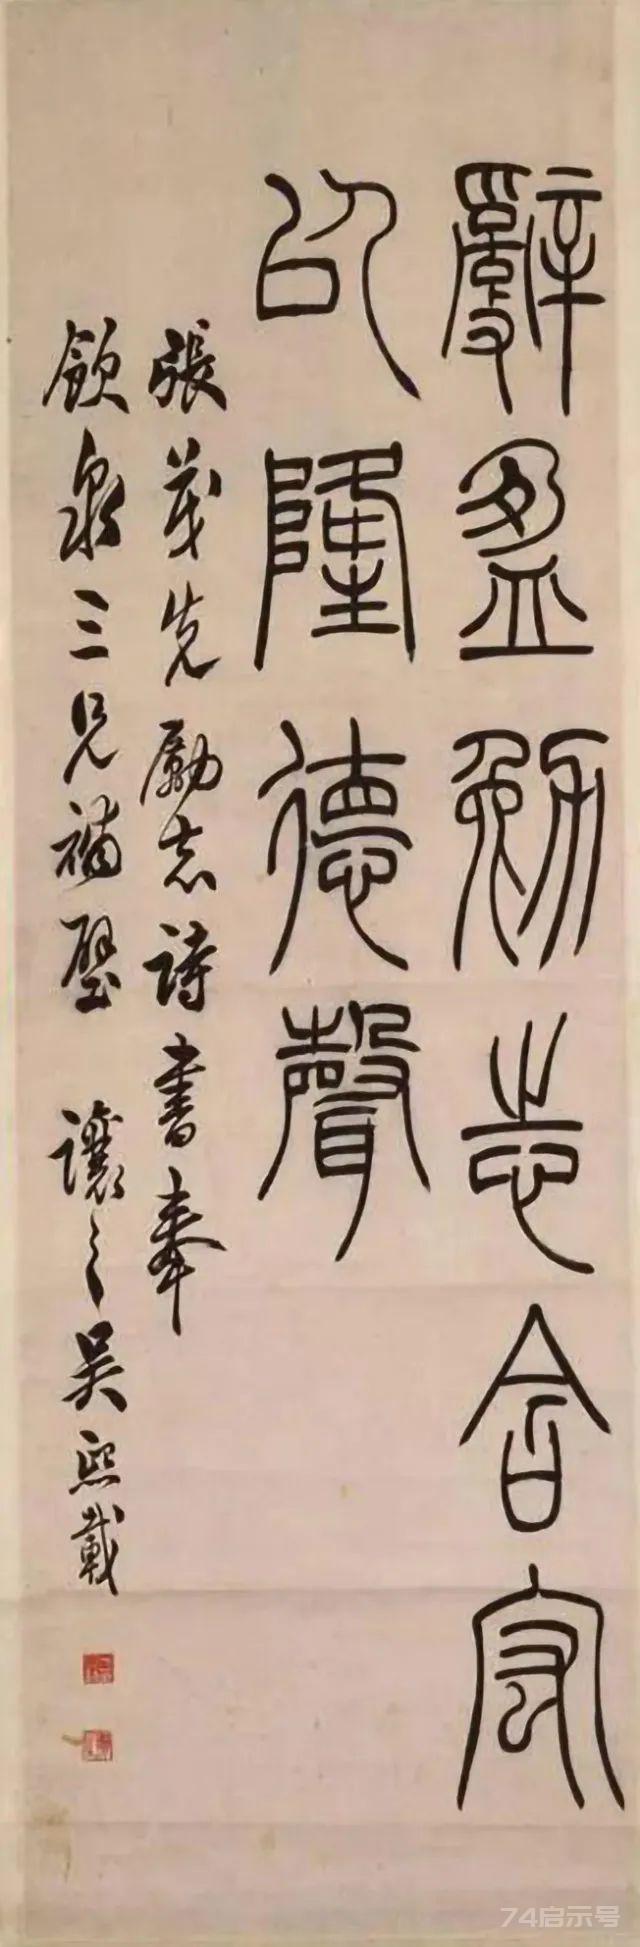 辭盈勉志含宏
以隆德聲
張茂先勵志詩書奉
飲泉三兄補壁 讓之吳熙載
74启示号